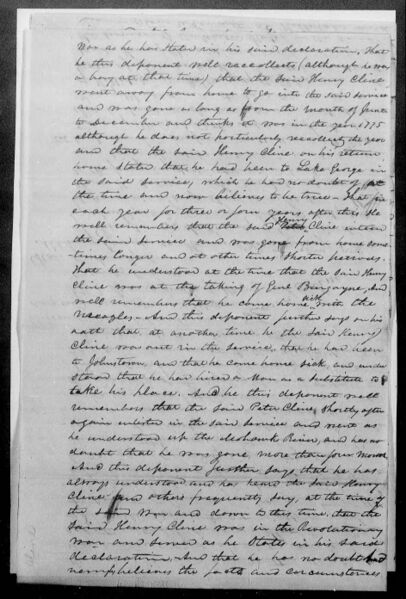 was as he has stated in his said declaration, That
he this deponent well reccollects (although he was
a boy at that time) that the said Henry Cline
went away from home to go into the said service
and was gone as long as from the month of June
to December and thinks it was in the year 1775
although he does not particularly reccollect the year
and that the said Henry Cline on his return
home stated that he had been to Lake George in
the said service, which he had no doubt of at
the time and now believes to be true - That for
each year for three or four years after this He
well remembers that the said Henry Cline entered
the same service and was gone from home some-
times longer and at other times shorter periods.
That he understood at the time that the said Henry
Cline was at the taking of Genl Burgoyne, and
well remembers that he came home with the
And this deponent further says on his
oath that at another time he the said Henry
Cline was out in the service, that he had been
to Johnstown, and that he came home sick, and under
stood that he had hired a Man as a substitute to
take his place. And he this deponent well
remembers that the said Peter Cline shortly after
again entered in the said service and went as
he understood up the Mohawk River, and has no
doubt that he was gone more than four months
And this deponent further says that he has
always understood and has heard the said Henry
Cline and others frequently say, at the time of
the said War and down to this time, that the
said Henry Cline was in the Revolutionary
War and served as he states in his said
declaration. And that he has no doubt and
believes the facts and circumstances